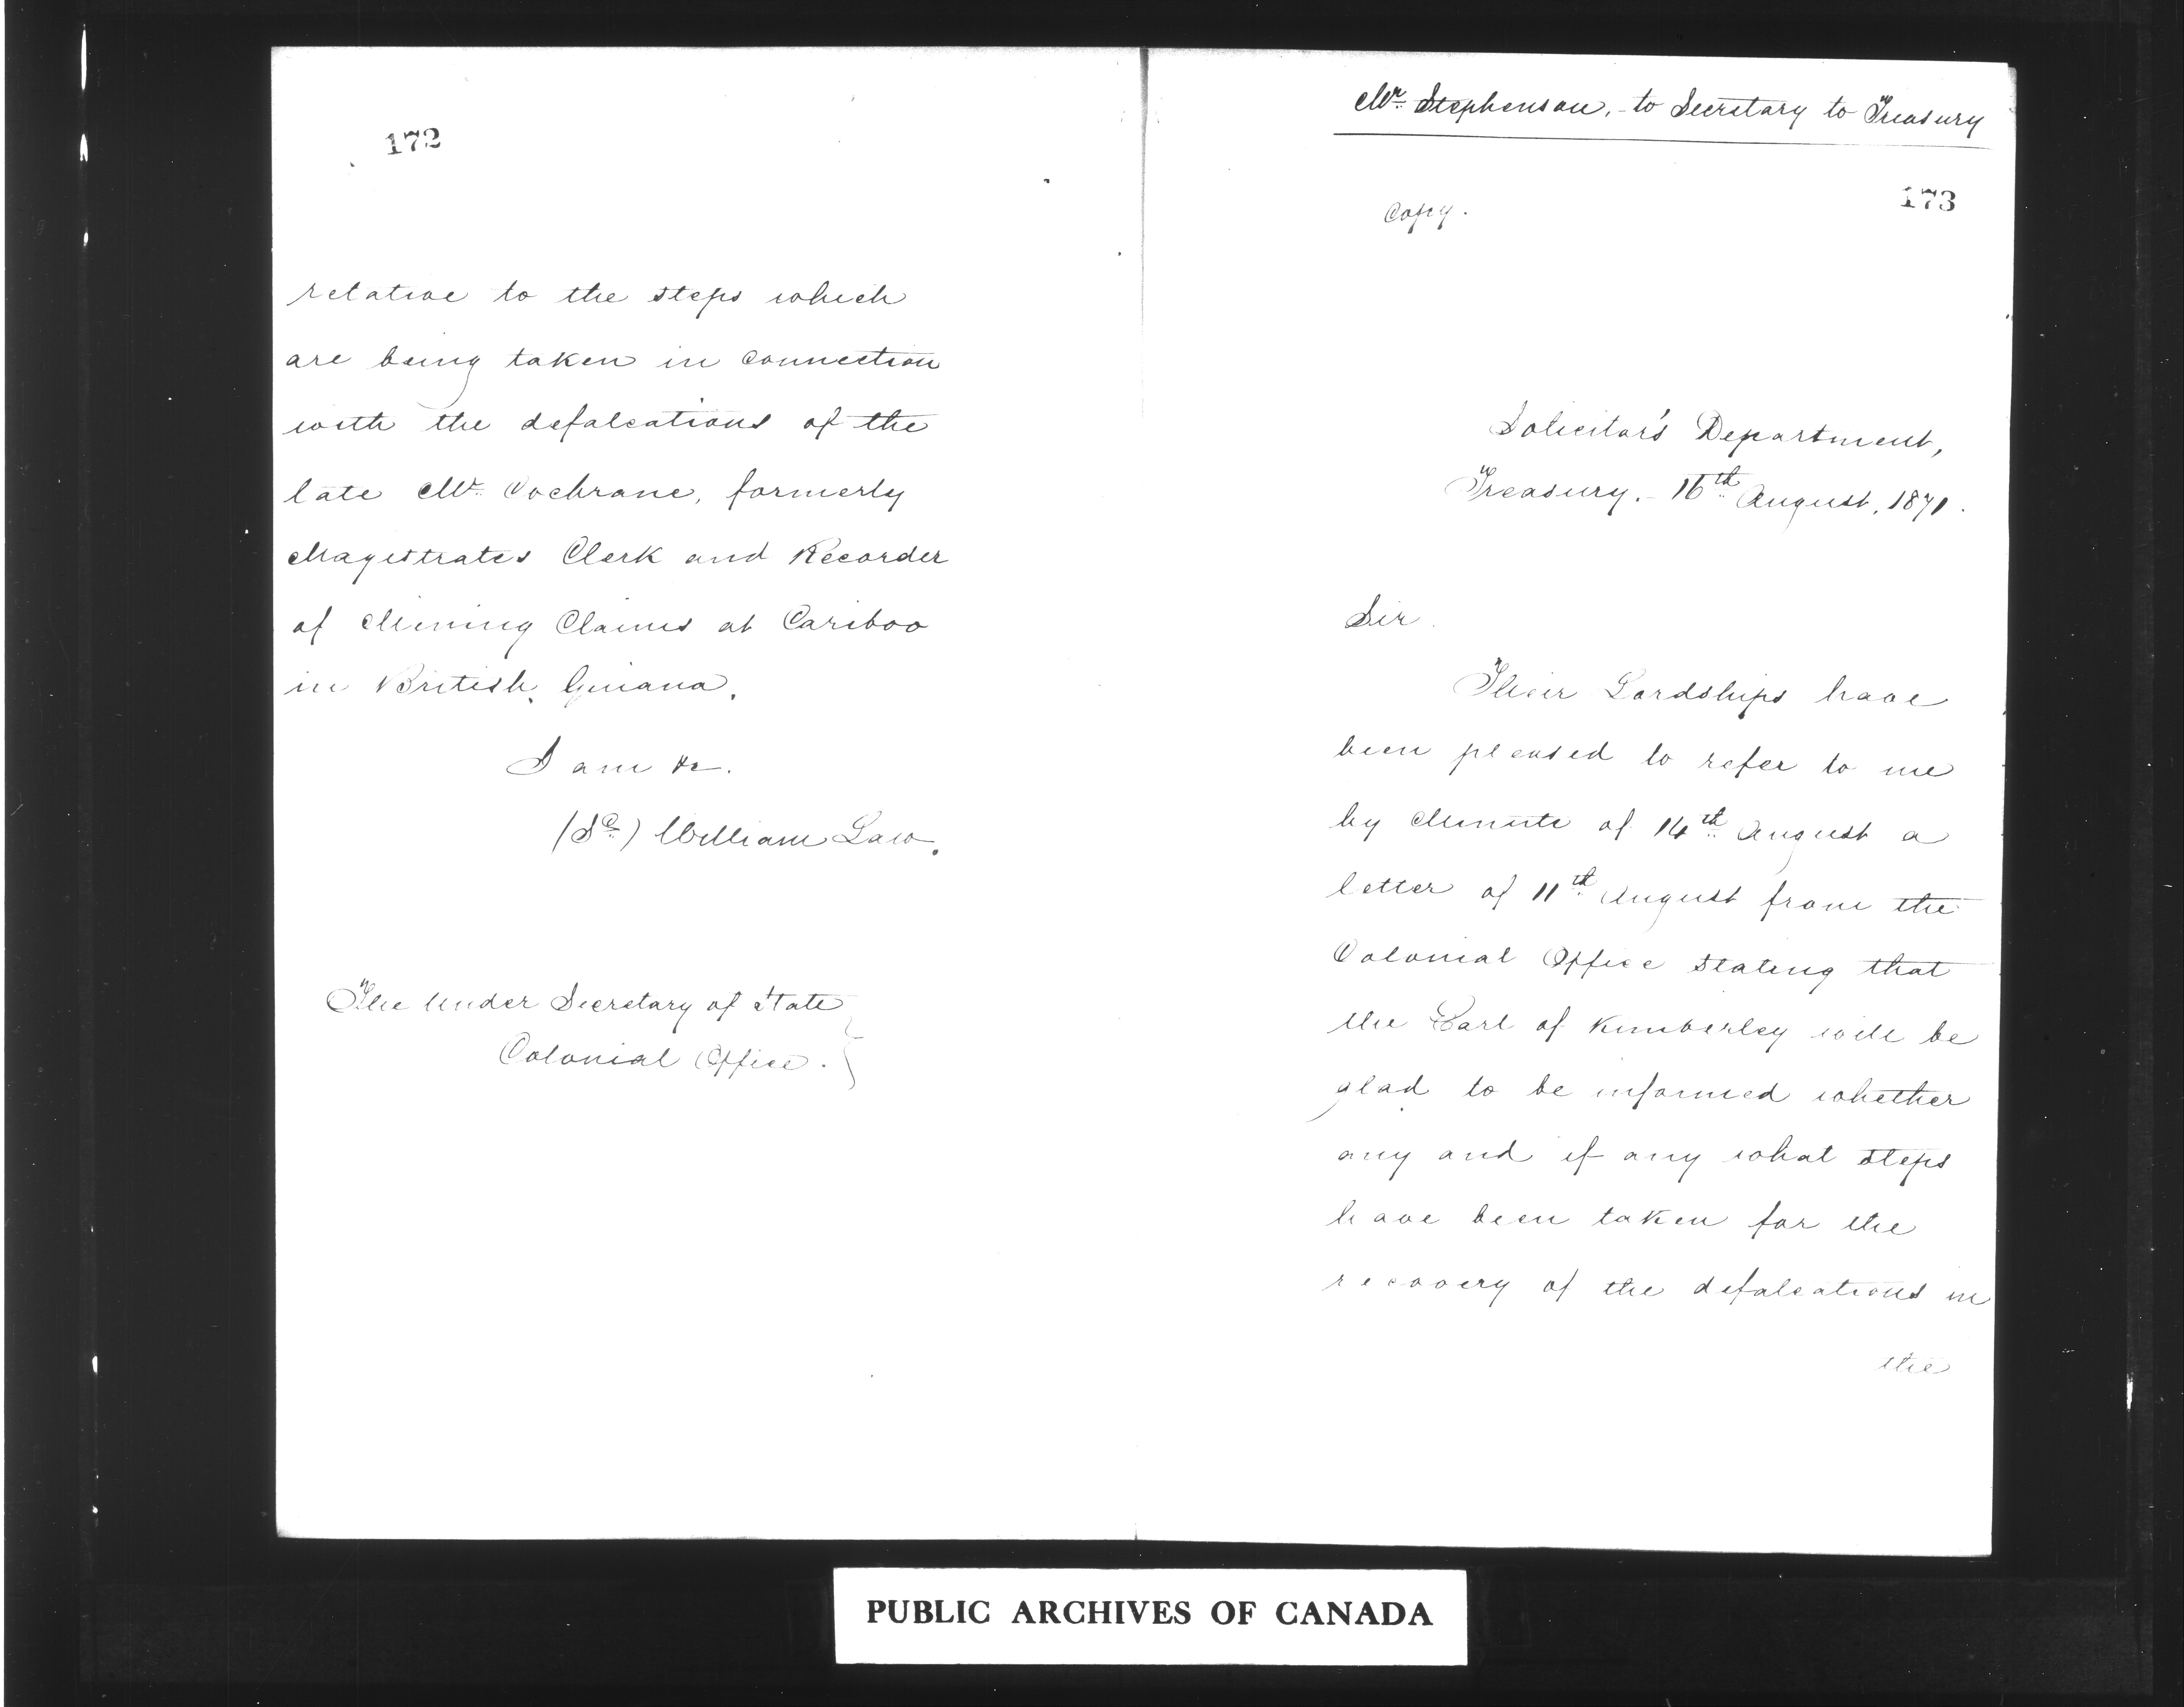 172
relative to the steps which
are being taken in connection
with the defalcations of the
late Mr. Cochrane, formerly
Magistrates Clerk and Recorder
of Mining Claims at Cariboo
in British Guiana.
I am &c.
(Sd.) William Law.
The Under Secretary of State
Colonial Office.
Mr. Stephenson, - to Secretary to Treasury
173
Copy.
Solicitor's Department,
Treasury. - 16th August, 1871.
Sir.
Their Lordships have
been pleased to refer to me
by Minute of 14th August a
letter of 11th August from the
Colonial Office stating that
the Earl of Kimberley will be
glad to be informed whether
any and if any what steps
have been taken for the
recovery of the defalcations in
the
PUBLIC ARCHIVES OF CANADA